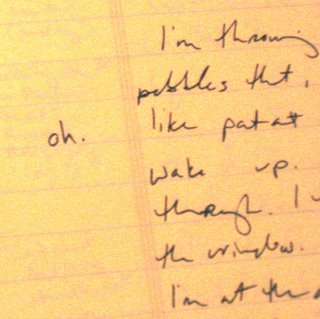 I'm throwing
pebbles that,
oh.
like
wake up.
through. I
the window.
I'm at the